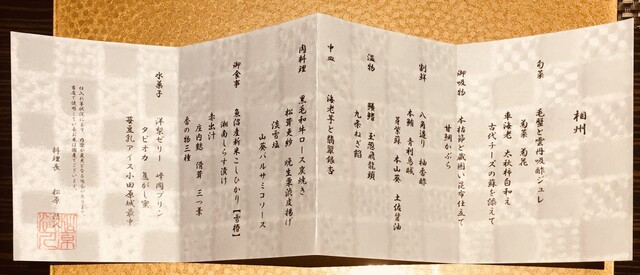 相州
旬菜
毛蟹と雲丹吸酢ジュレ
菊菜 菊花
車海老 太秋柿白和え
古代チーズの蘇を添えて
御吸物
本枯節と蔵囲い昆布仕立て
甘鯛かぶら
割鮮
八角造り 柚香酢
本鮪 青利烏賊
芽紫蘇 本山葵 土佐醤油
温物
鰻鰭 玉葱飛龍頭
九条ねぎ餡
中皿
海老芋と翡翠銀杏
肉料理
黒毛和牛ロース炭焼き
松茸東紗 焼生栗渋皮揚げ
淡雪塩
山葵バルサミコソース
御食事
魚沼産新米こしひかり【雪椿】
湘南しらす漬け
赤出汁
庄内麩 滑茸 三つ葉
香の物三種
水菓子
洋梨ゼリー 峰岡プリン
タピオカ 夏がし蜜
苺豆乳アイス小田原城最中
料理長 松原